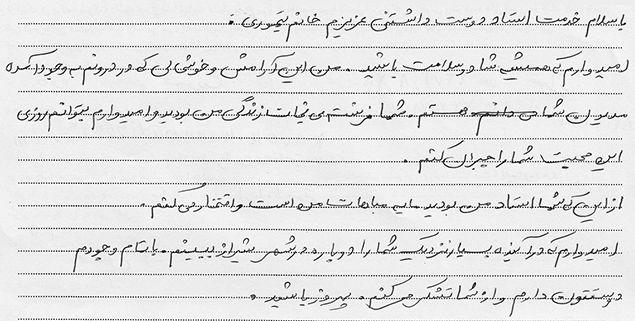 با سلام خدمت استاد دوست داشتنی عزیزم خانم تیموری :
امیدوارم که همیشه شاد و سلامت باشید . من این آرامش و خوشحالی که در درونم به وجود آمده
مدیون شما می دانم هستم . شما فرشته ی نجات زندگی من بودید و امیدوارم بتوانم روزی
این محبت شما را جبران کنم .
از این که شما استاد من بودید مایه مباهات من است و افتخار می کنم .
امیدوارم که در آینده بسیار نزدیک شما را دوباره در شهر شیراز ببینم . با تمام وجودم
دوستتون دارم و از شما تشکر می کنم . پیروز باشید .